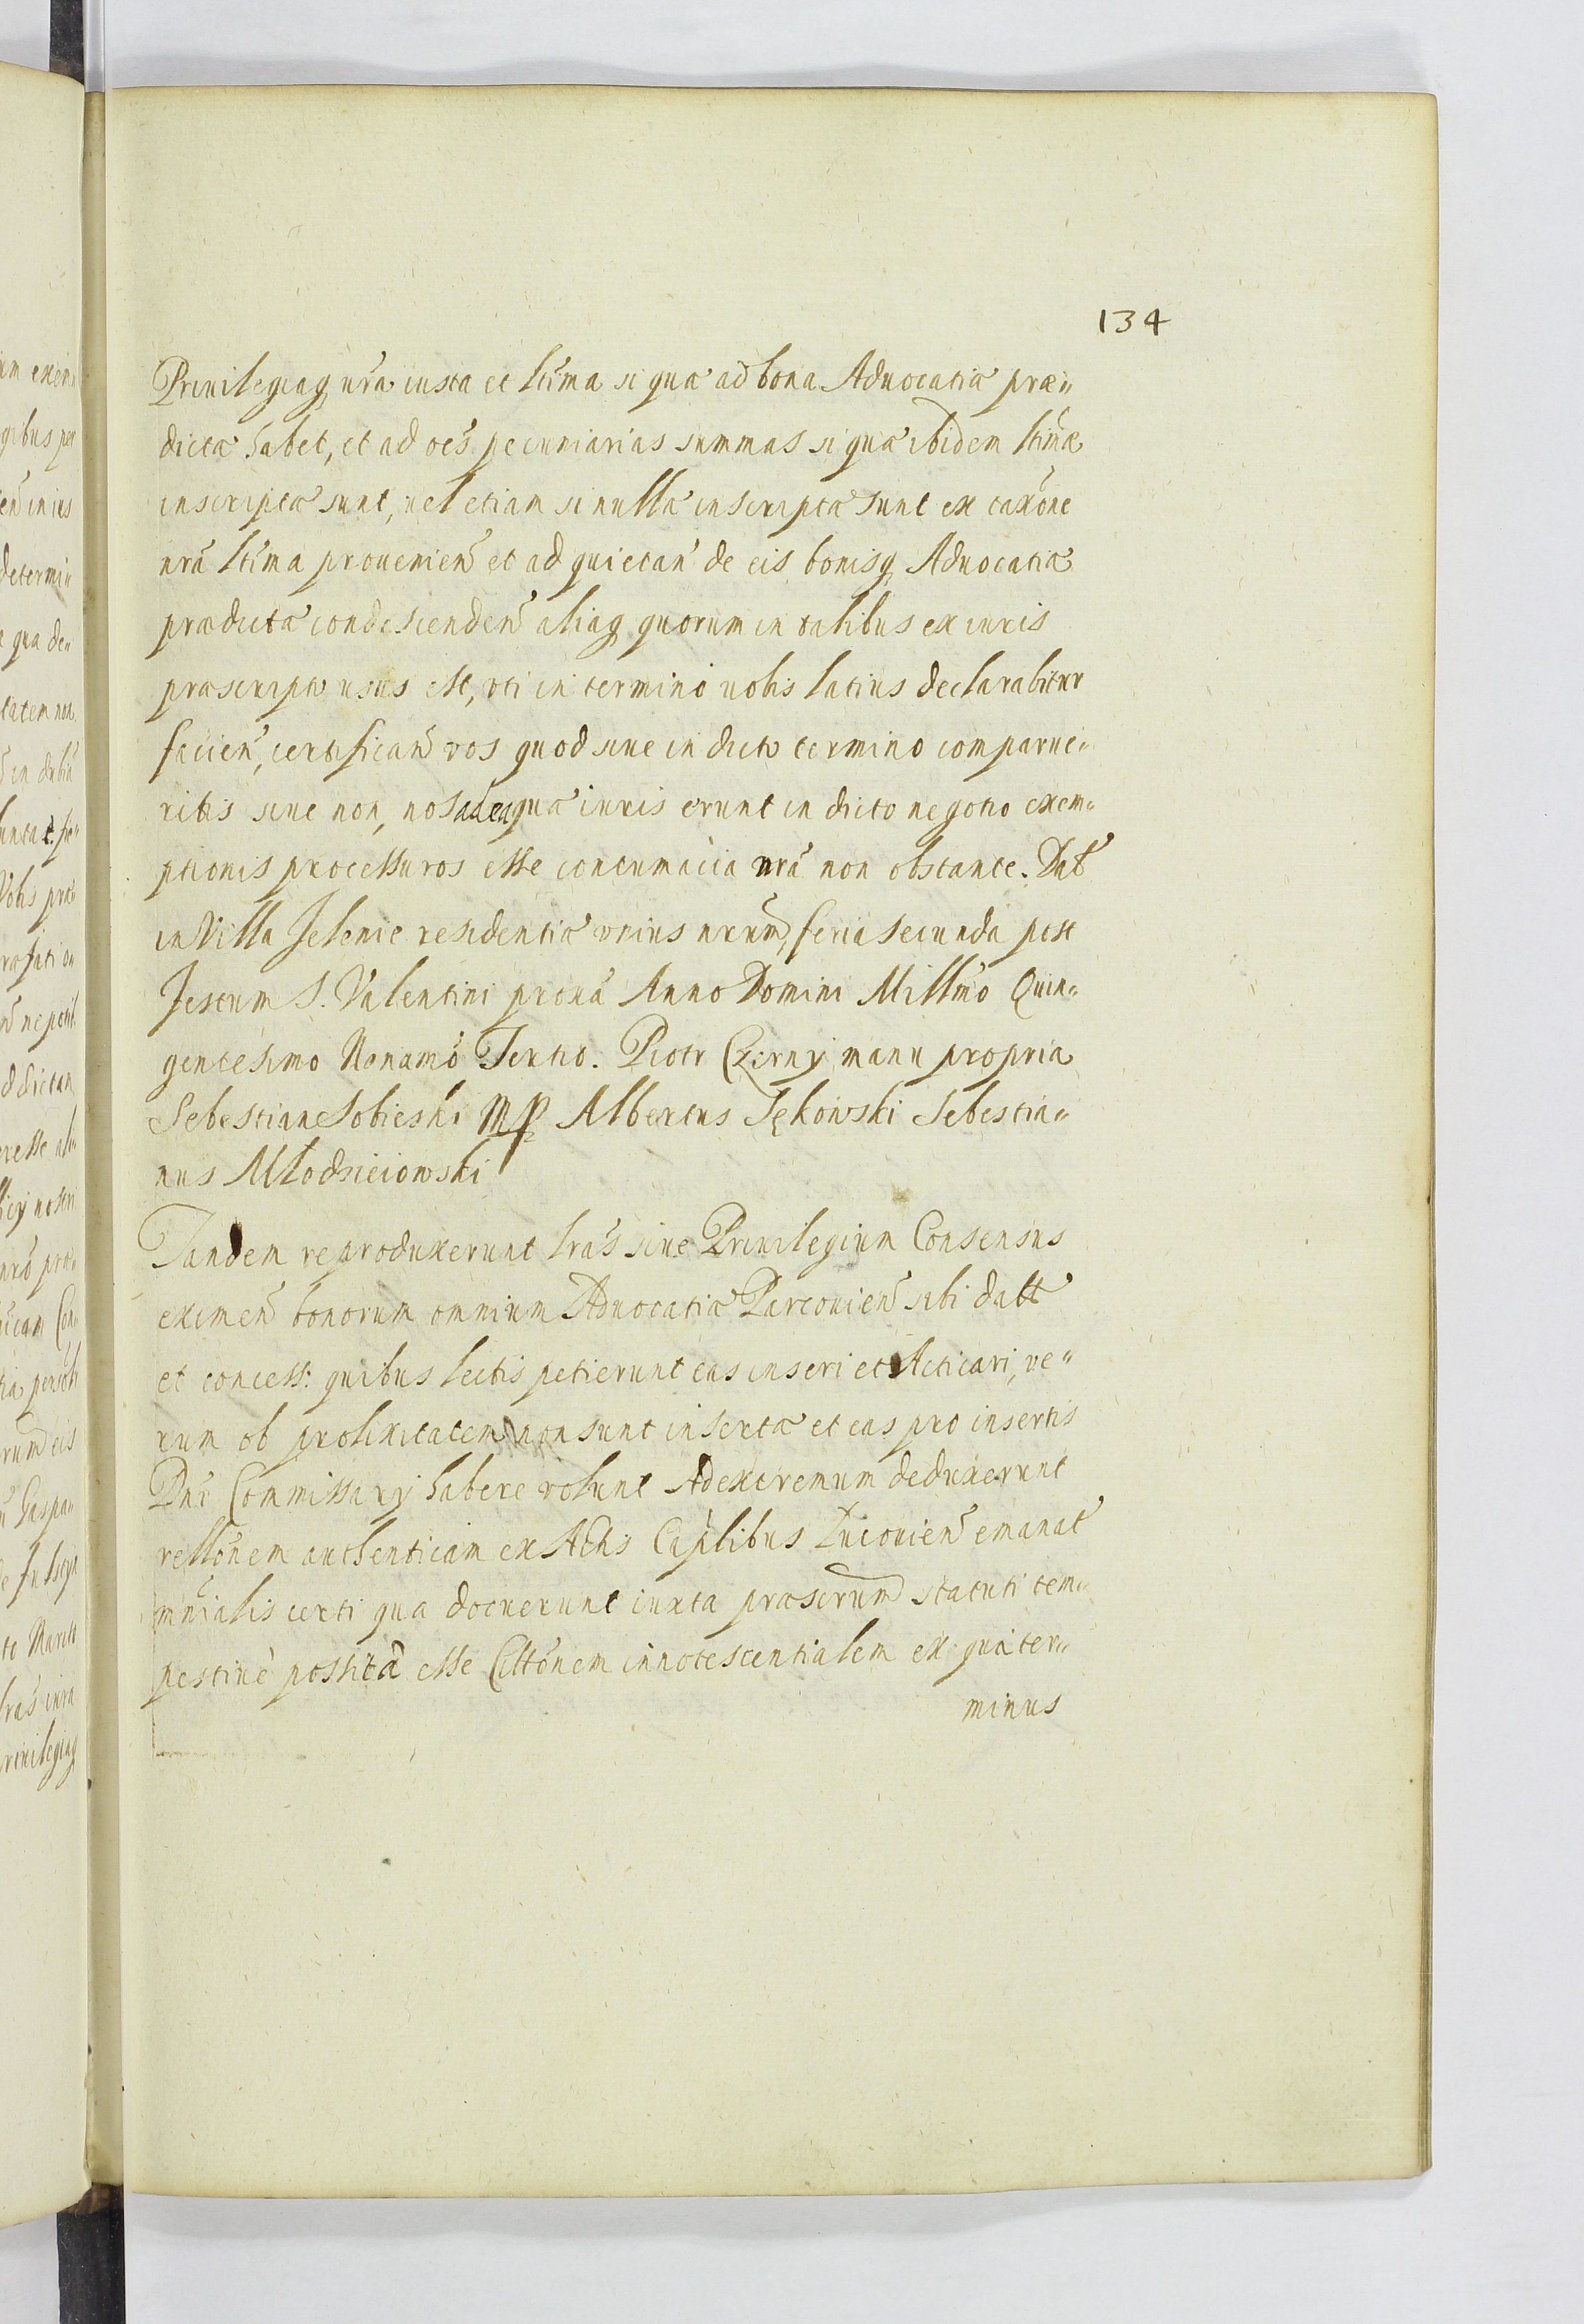 134
Priuilegiaq, vr̃a iusta et ltĩma si quæ ad bona Aduocatiæ præ„
dictæ habet, et ad oẽs pecuniarias summas si quæ ibidem ltĩmæ
inscriptæ sunt, uel etiam si nullæ inscriptæ sunt ex taxõne
nrã ltĩma prouenieñ et ad quietañ de eis bonisq, Aduocatiæ
prædictæ condescendeñ aliaq, quorum in talibus ex iuris
præscripto usus est, vti in termino uobis latius declarabitur
facieñ, certificañ vos quod siue in dicto termino comparue„
ritis siue non, nos ad ea quæ iuris erunt in dicto negotio exem„
ptionis processuros esse contumacia vrã non obstante. Dat̃
in Villa Jelenie residentia vnius nrum̃, feria secunda post
Festum S. Valentini proxã Anno Domini Millm̃o Quin„
gentesimo Nonamõ Tertio. Piotr Czerny manu propria
Sebestian Sobieski mp Albertus Sękowski Sebestia„
nus Młodzieiowski
Tandem reproduxerunt lrãs siue Priuilegium Consensus
eximeñ bonorum omnium Aduocatiæ Parcouieñ sibi datt̃
et concess: quibus lectis petierunt eas inseri et Acticari, ve„
rum ob prolixitatem non sunt insertæ et eas pro insertis
Dnĩ Commissarÿ habere volunt Ad extremum deduxerunt
rellõnem authenticam ex Actis Cap̃libus Xucouieñ emanat̃
mñialis certi qua docuerunt iuxta præscrum̃ statuti tem„
pestiuè positã esse Cittõnem innotescentialem ex qua ter„
minus